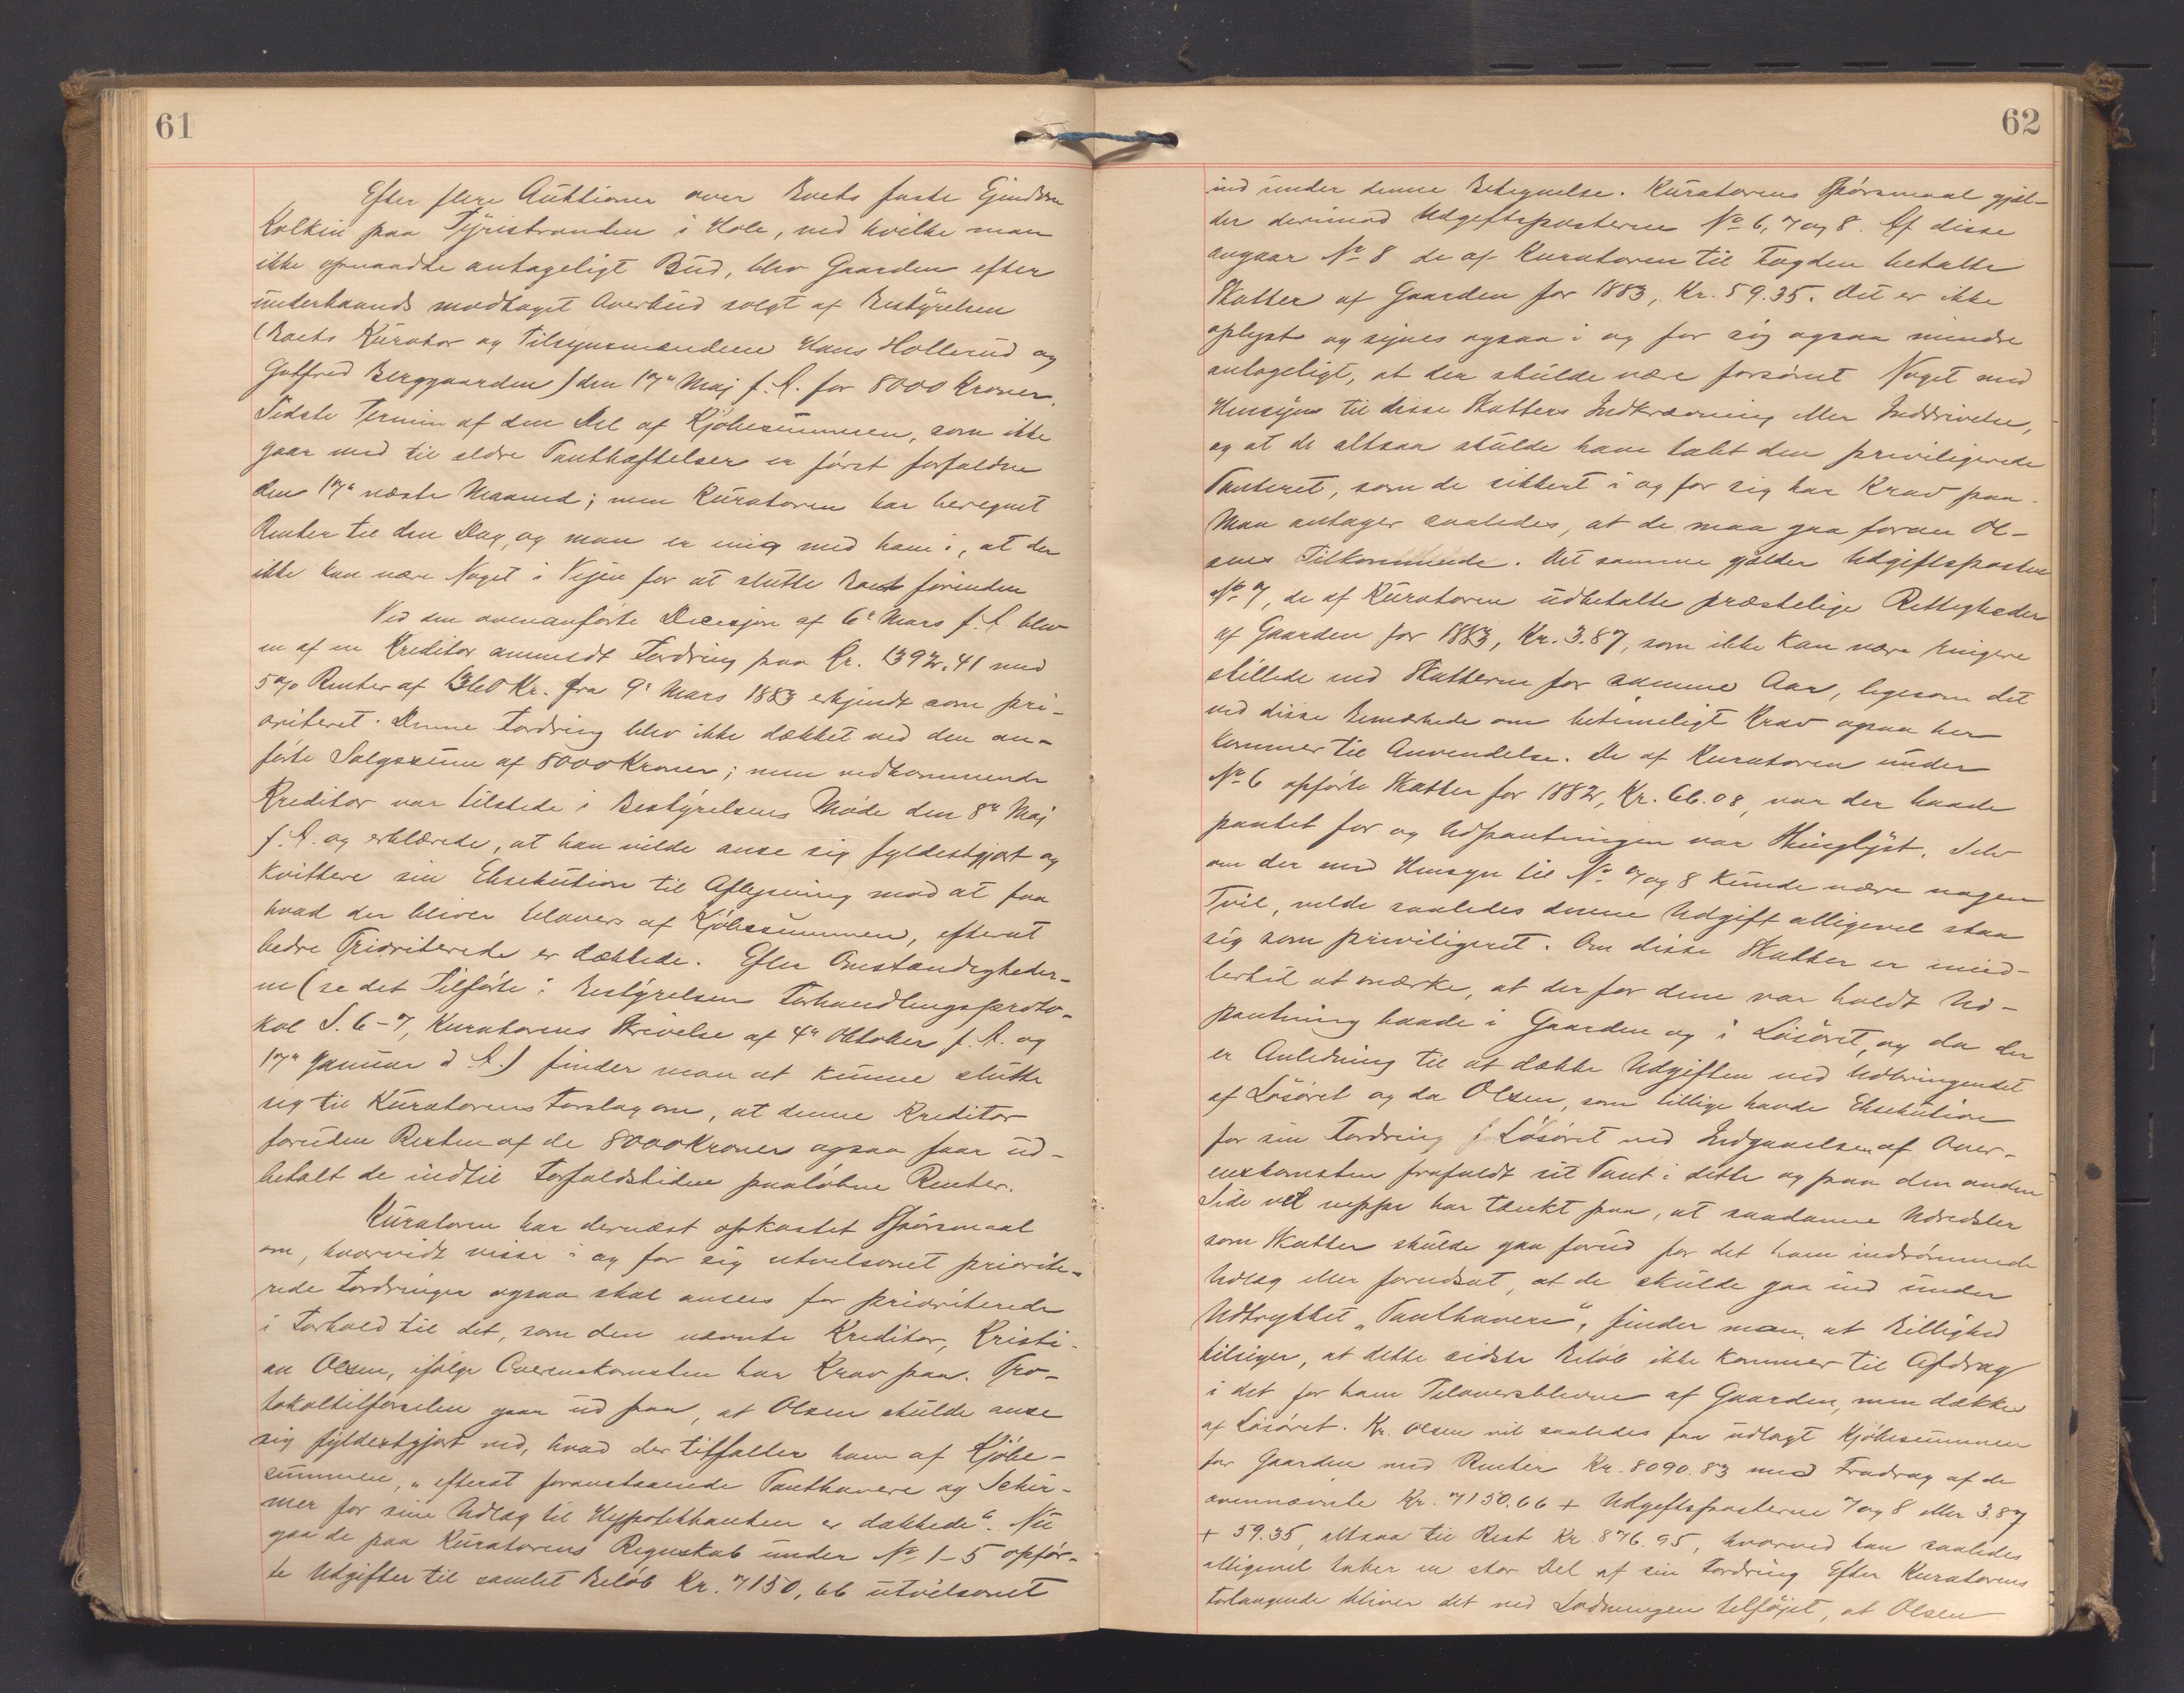 61
Efter flere Auktioner over Boets faste Ejendom
Kolkin paa Tyristranden i Hole, ved hvilke man
ikke opnaadde antageligt Bud, blev Gaarden efter
underhaands modtaget Overbud solgt af Bestyrelsen
(Boets Kurator og Tilsynsmændene Hans Hollerud og
Gutfred Berggaarden) den 17de Maj f. A. for 8000 Kroner.
Sidste Termin af den Del af Kjøbesummen, som ikke
gaar med til ældre Panthæftelser er først forfalden
den 17de næste Maaned; men Kuratoren har beregnet
Renter til den Dag, og man er enig med ham i, at der
ikke kan være Noget i Vejen for at slutte Boet forinden
Ved den ovenanførte Decisjon af 6te Mars f. A blev
en af en Kreditor anmeldt Fordring paa Kr. 1392.41 med
5 % Renter af 1360 Kr. fra 9de Mars 1883 erkjendt som pri-
oriteret. Denne Fordring blev ikke dækket ved den an-
førte Salgssum af 8000 Kroner; men vedkommende
Kreditor var tilstede i Bestyrelsens Møde den 8de Maj
f. A. og erklærede, at han vilde anse sig fyldestgjort og
kvittere sin Eksekution til Aflysning mod at faa
hvad der bliver tilovers af Kjøbesummen, efterat
bedre Prioriterede er dækkede. Efter Omstændigheder-
ne (se det Tilførte i Bestyrelsens Forhandlingsproto-
kol S. 6-7, Kuratorens Skrivelse af 4de Oktober f. A. og
17de Januar d A.) finder man at kunne slutte
sig til Kuratorens Forslag om, at denne Kreditor
foruden Resten af de 8000 Kroner ogsaa faar ud-
betalt de indtil Forfaldstiden paaløbne Renter.
Kuratoren har dernæst opkastet Spørsmaal
om, hvorvidt visse i og for sig utvilsomt priorite-
rede Fordringer ogsaa skal ansees for prioriterede
i Forhold til det, som den nævnte Kreditor, Kristi-
an Olsen, ifølge Overenskomsten har Krav paa. Pro-
tokoltilførselen gaar ud paa, at Olsen skulde anse
sig fyldestgjort ved, hvad der tilfalder ham af Kjøbe-
summen, "efterat foranstaaende Panthavere og Schir-
mer for sine Udlæg til Hypothekbanken er dækkede". Nu
gaa de paa Kuratorens Regnskab under No 1-5 opfør-
te Udgifter til samlet Beløb Kr. 7150,66 utvilsomt
62
ind under denne Betegnelse. Kuratorens Spørsmaal gjæl-
der derimod Udgiftsposterne No 6, 7 og 8. Af disse
angaar No 8 de af Kuratoren til Fogden betalte
Skatter af Gaarden for 1883, Kr. 59.35. Det er ikke
oplyst og synes ogsaa i og for sig ogsaa mindre
antageligt, at der skulde være forsømt Noget med
Hensyn til disse Skatters Indkrævning eller Inddrivelse,
og at de altsaa skulde have tabt den priviligerede
Panteret, som de sikkert i og for sig har Krav paa.
Man antager saaledes, at de maa gaa foran Ol-
sens Tilkommende. Det samme gjælder Udgiftsposten
No 7, de af Kuratoren udbetalte præstelige Rettigheder
af Gaarden for 1883, Kr. 3.87, som ikke kan være ringere
stillede end Skatterne for samme Aar, ligesom det
ved disse Bemærkede om betimeligt Krav ogsaa her
kommer til Anvendelse. De af Kuratoren under
No 6 opførte Skatter for 1882, Kr. 66.08, var der baade
pantet for og Udpantningen var thinglyst. Selv
om der med Hensyn til No 7 og 8 kunde være nogen
Tvil, vilde saaledes denne Udgift alligevel staa
sig som priviligeret. Om disse Skatter er imid-
lertid at mærke, at der for dem var holdt Ud-
pantning baade i Gaarden og i Løsøret, og da der
er Anledning til at dække Udgiften ved Udbringendet
af Løsøret og da Olsen, som tillige havde Eksekution
for sin Fordring i Løsøret ved Indgaaelsen af Over-
enskomsten frafaldt sit Pant i dette og paa den anden
Side vel neppe har tænkt paa, at saadanne Udredsler
som Skatter skulde gaa forud for det ham indrømmede
Udlæg eller forudsat, at de skulde gaa ind under
Udtrykket "Panthavere", finder man, at Billighed
tilsiger, at dette sidste Beløb ikke kommer til Afdrag
i det for ham Tiloversblevne af Gaarden, men dækkes
af Løsøret. Kr. Olsen vil saaledes faa udlagt Kjøbesummen
for Gaarden med Renter Kr. 8090.83 med Fradrag af de
ovennævnte Kr. 7150.66 + Udgiftsposterne 7 og 8 eller 3.87
+ 59.35, altsaa til Rest Kr. 876.95, hvorved han saaledes
alligevel taber en stor Del af sin Fordring. Efter Kuratorens
Forlangende bliver det ved Lodningen tilføjet, at Olsen